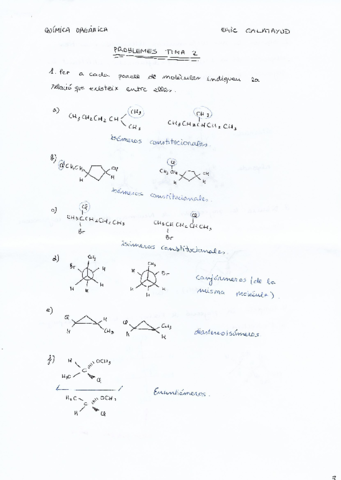 QUÍMICA ORGÀNICA ERIC CALATAYUD
PROBLEMES TEMA 2
1. Per a cada parell de molècules indiqueu la
relació que existeix entre elles.
a) CH3CH2CH2CH CH3 CH3 CH3 CH3CH2CHCH2CH3
isòmeros constitucionales.
b) ClCH2CH2 OH H H Cl CH3CH OH H H
isòmeros constitucionales.
c) Cl CH3CHCHCH2CH3 Br Cl CH3CHCH2CHCH3 Br
isòmeros constitucionales.
d) CH3 Br H H H CH3 Br H H H
confórmeros (de la
misma molècula)
e) Cl H H CH3 Cl H CH3 H
diastereoisòmeros
f) H OCH3 H3C C Cl
H3C OCH3 C H Cl
Enantiòmeros.